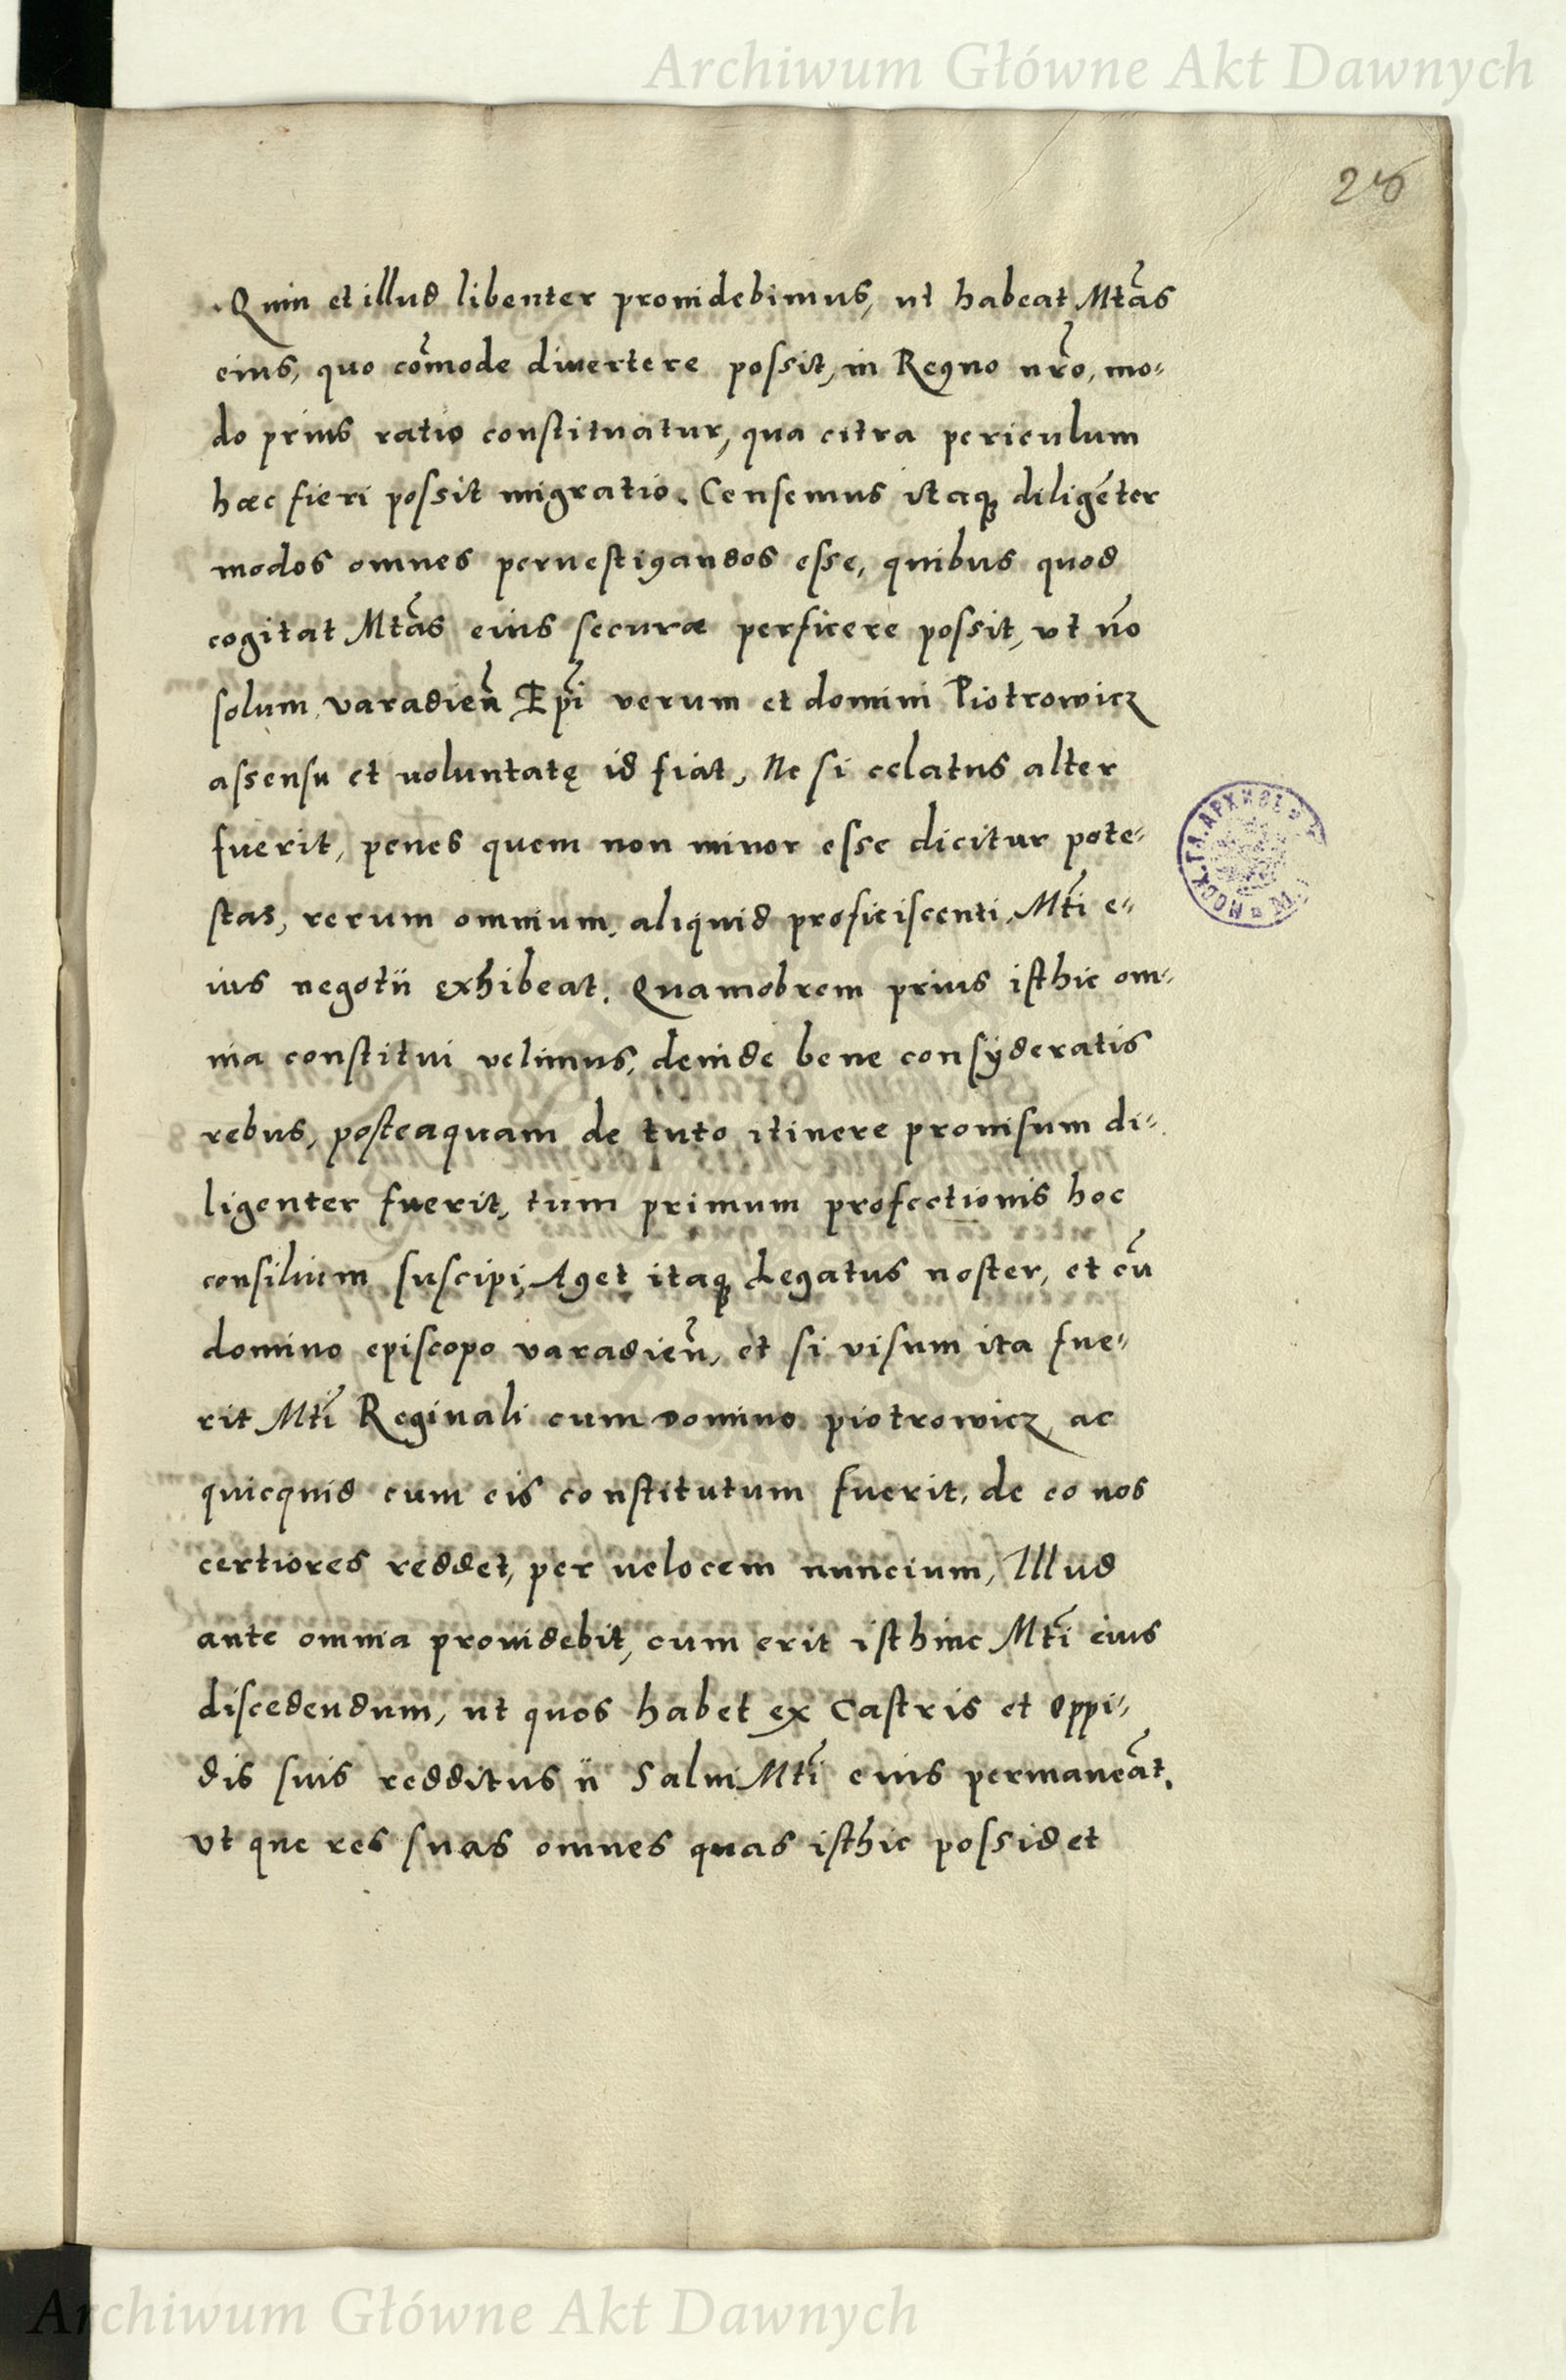 Archiwum Główne Akt Dawnych
26
Quin et illud libenter prouidebimus, ut habeat Mtãs
eius, quo cõmode diuertere possit, in Regno nr̃o, mo-
do prius ratio constituatur, qua citra periculum
hæc fieri possit migratio. Censemus itaq; diligẽter
modos omnes peruestigandos esse, quibus quod
cogitat Mtãs eius securæ perficere possit, ut nõ
solum varadień Ep̃i verum et domini Piotrowicz
assensu et uoluntatę id fiat, Ne si celatus alter
fuerit, penes quem non minor esse dicitur pote-
stas, rerum omnium, aliquid proficiscenti Mtĩ e-
ius negotii exhibeat. Quamobrem prius isthic om-
nia constitui velimus, deinde bene consÿderatis
rebus, posteaquam de tuto itinere prouisum di-
ligenter fuerit, tum primum profectionis hoc
consilium suscipi, Aget itaq; Legatus noster, et cũ
domino episcopo varadień, et si visum ita fue-
rit Mtĩ Reginali cum domino piotrowicz, ac
quicquid cum eis constitutum fuerit, de eo nos
certiores reddet, per uelocem nuncium, Illud
ante omnia prouidebit, cum erit isthinc Mtĩ eius
discedendum, ut quos habet ex Castris et oppi-
dis suis redditus ii Salui Mtĩ eius permaneãt.
vt que res suas omnes quas isthic possidet
Archiwum Główne Akt Dawnych